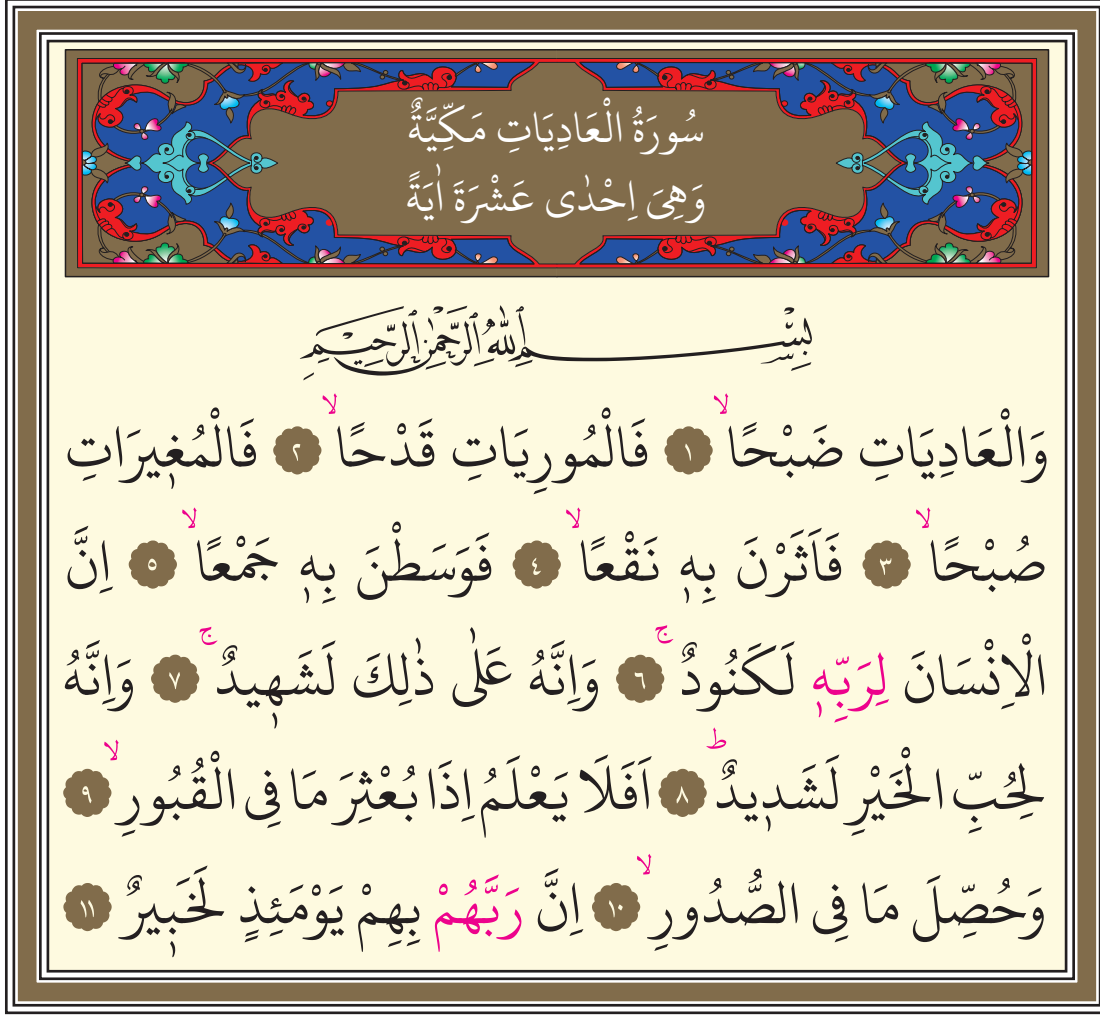 سُورَةُ الْعَادِيَاتِ مَكِّيَّةٌ
وَهِىَ اِحْدٰى عَشْرَةَ اٰيَةً
بِسْمِ اللّٰهِ الرَّحْمٰنِ الرَّحِيمِ
وَالْعَادِيَاتِ ضَبْحًاۙ ﴿١﴾ فَالْمُورِيَاتِ قَدْحًاۙ ﴿٢﴾ فَالْمُغ۪يرَاتِ
صُبْحًاۙ ﴿٣﴾ فَاَثَرْنَ بِه۪ نَقْعًاۙ ﴿٤﴾ فَوَسَطْنَ بِه۪ جَمْعًاۙ ﴿٥﴾ اِنَّ
الْاِنْسَانَ لِرَبِّه۪ لَكَنُودٌۚ ﴿٦﴾ وَاِنَّهُ عَلٰى ذٰلِكَ لَشَه۪يدٌۚ ﴿٧﴾ وَاِنَّهُ
لِحُبِّ الْخَيْرِ لَشَد۪يدٌۜ ﴿٨﴾ اَفَلَا يَعْلَمُ اِذَا بُعْثِرَ مَا فِى الْقُبُورِۙ ﴿٩﴾
وَحُصِّلَ مَا فِى الصُّدُورِۙ ﴿١٠﴾ اِنَّ رَبَّهُمْ بِهِمْ يَوْمَئِذٍ لَخَب۪يرٌ ﴿١١﴾